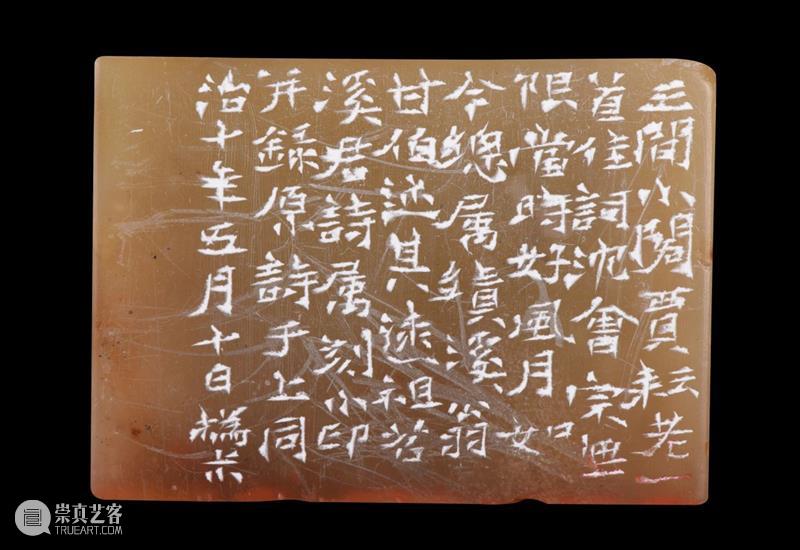 三間小閣賈耘老一
首佳詞沈會宗無
限當時好風月如
今總属績溪翁
甘伯述其遠祖苕
溪君詩属刻小印
并録原詩于上同
治十年五月十日撝尗
崇真艺客
TRUEART.COM